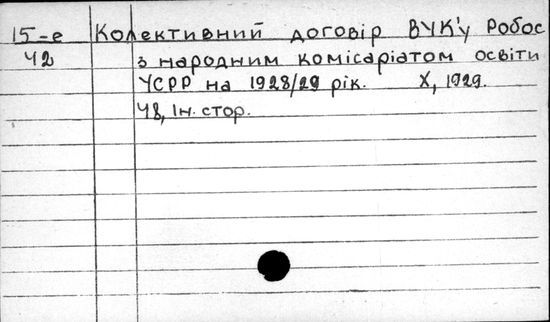 15-е Колективний договір ВУК'у Робос
42 з народним комісаріатом освіти
УСРР на 1928/29 рік. X, 1929.
48, Ін. стор.